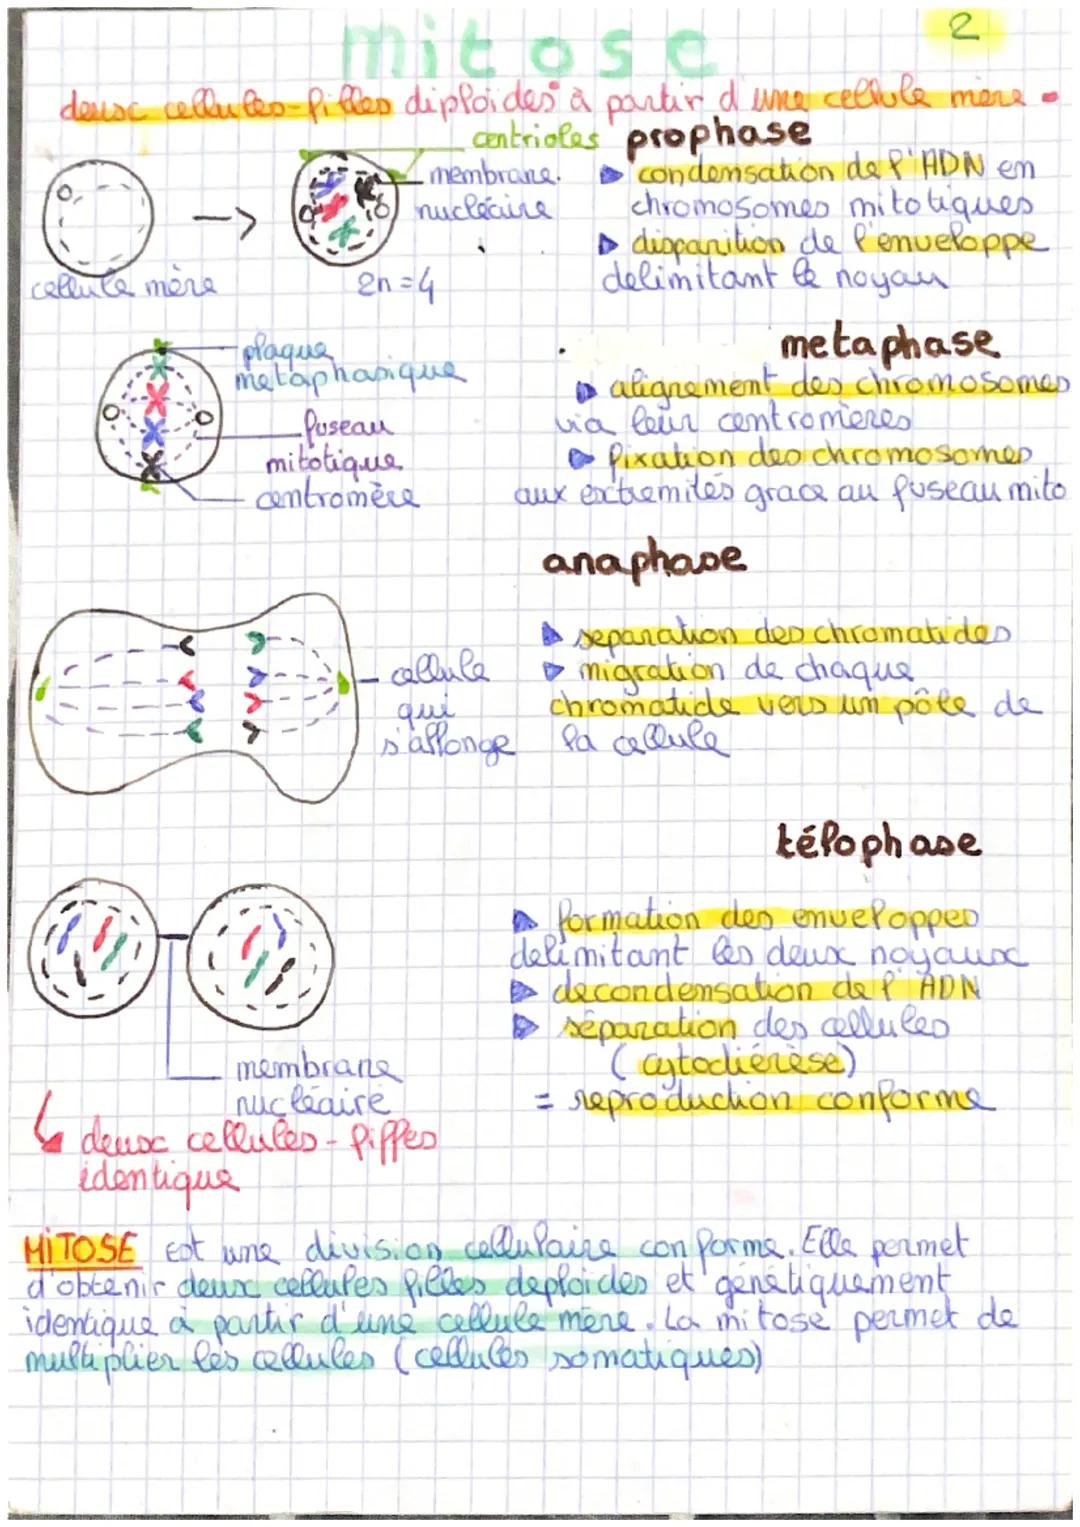 mitose
2
deux cellules-filles diploïdes à partir d'une cellule mère
centrioles
prophase
membrane
nucléaire
▶ condensation de l'ADN en
chromosomes mitotiques
▶ disparition de l'enveloppe
delimitant le noyau
cellule mère
2n = 4
plaque
metaphasique
fuseau
mitotique
centromère
metaphase
▶ alignement des chromosomes
via leur centromères
▶ fixation des chromosomes
aux extremités grace au fuseau mito
anaphase
cellule
qui
s'allonge
▶ séparation des chromatides
▶ migration de chaque
chromatide vers un pôle de
la cellule
télophase
▶ formation des enveloppes
delimitant les deux noyaux
▶ decondensation de l'ADN
▶ séparation des cellules
(cytodiérèse)
= reproduction conforme
membrane
nucléaire
deux cellules-filles
identique
MITOSE est une division cellulaire conforme. Elle permet
d'obtenir deux cellules filles deploïdes et génétiquement
identique à partir d'une cellule mère. La mitose permet de
multiplier les cellules (cellules somatiques)